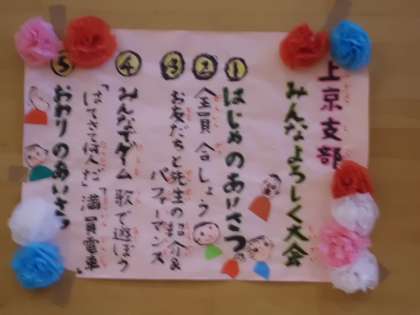 上京支部
みんなよろしく大会
1 はじめのあいさつ
2 全員合しょう
3 お友だちと先生の紹介&
パフォーマンス
4 みんなでゲーム 歌で遊ぼう
「はてさて何人だ」「満員電車」
5 おわりのあいさつ